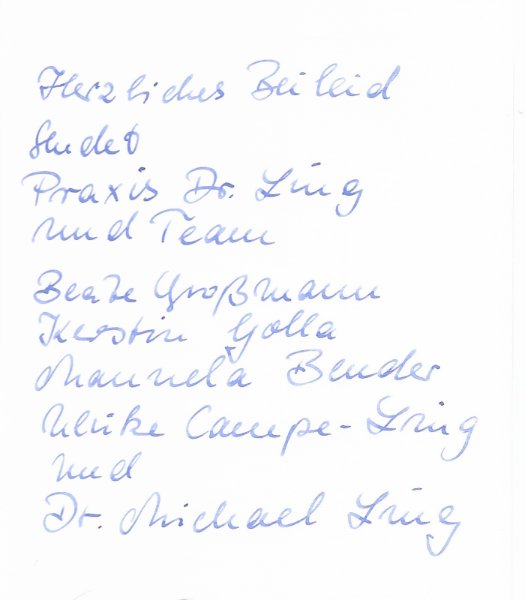 Herzliches Beileid
sendet
Praxis Dr. Ling
und Team
Beate Großmann
Kerstin Golla
Manuela Bender
Ulrike Campe-Ling
und
Dr. Michael Ling